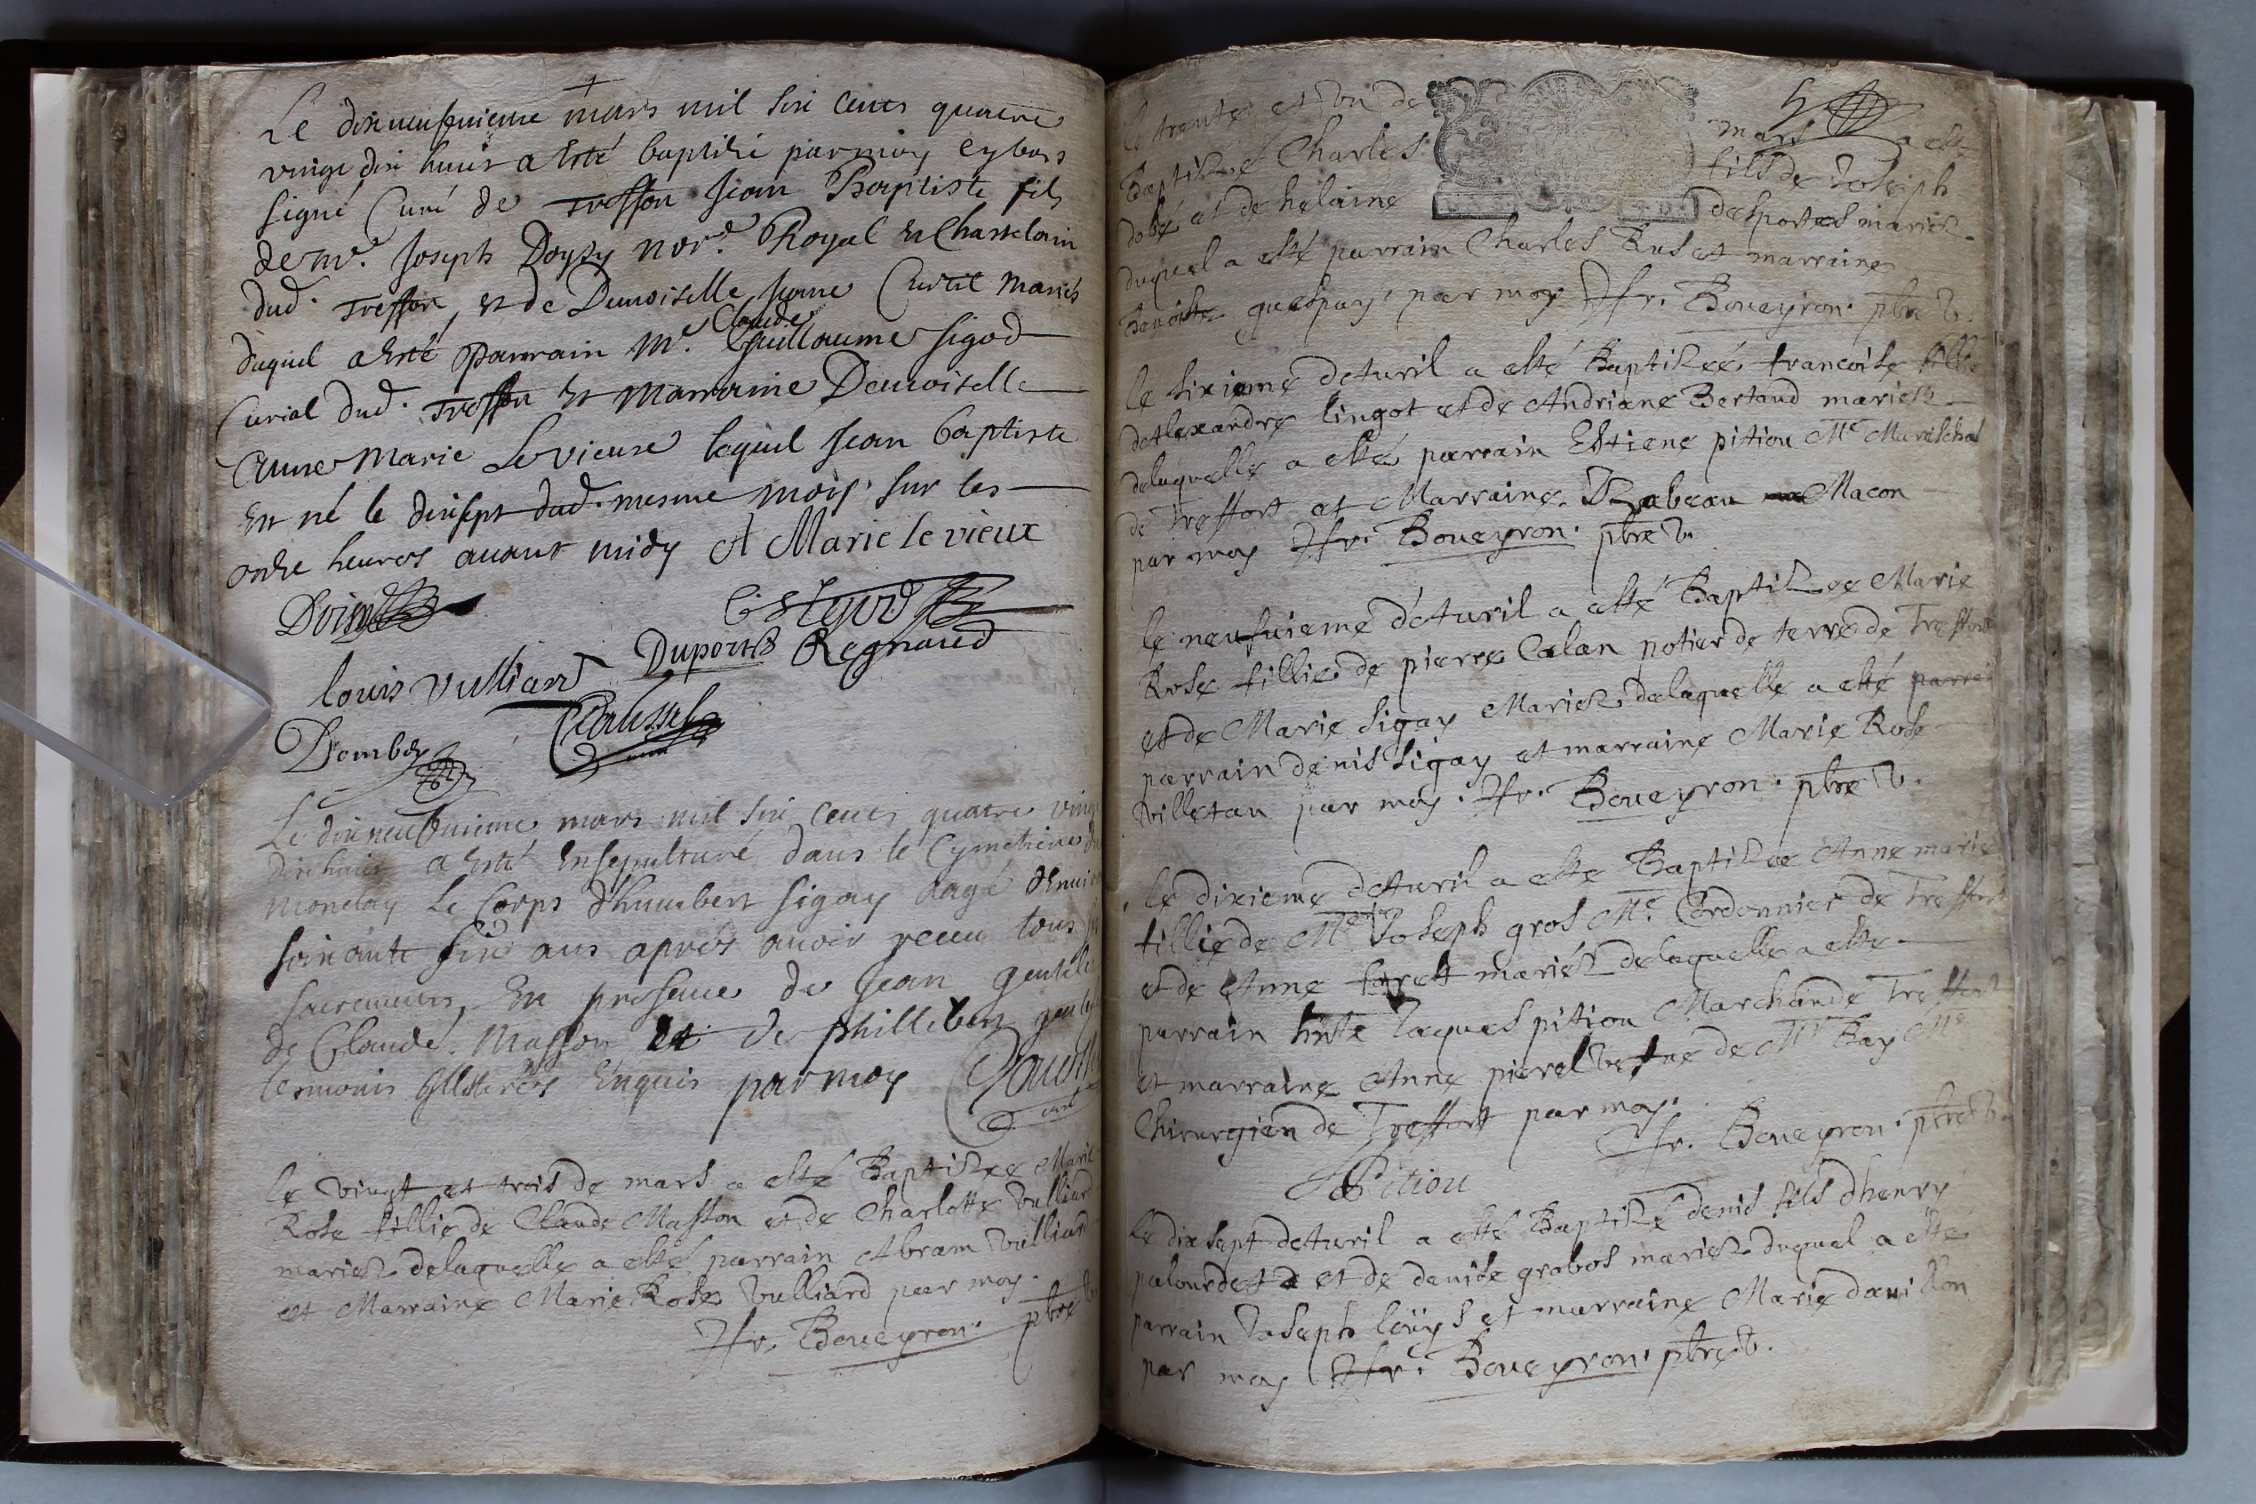 Le dixneufvieme mars mil six cents quatre
vingt dix huit a esté baptizé par moy cy bas
signé Curé de Treffon Jean Baptiste fils
de Mr. Joseph Doysy nore. Royal et Chastelain
dud. Treffon, et de Demoiselle Jeane Curtil mariés
duquel a esté Parrain Mre. Claude
Guillaume Sigod
Curial dud. Treffon et Marraine Demoiselle
Anne Marie Levieux lequel Jean baptiste
est né le dixsept dud. mesme mois sur les
onze heures avant midy A Marie le vieux
louis vulliard Duport Regnaud
Le dixneufvieme mars mil six cents quatre vingt
dix huit a esté ensepulturé dans le Cymetiere de
moncloy Le Corps d'humbert sigay aagé d'environ
soixante six ans aprés avoir receu tous
sacrements, En presence de Jean gentelet
de Claude Masson et de phillibert
tesmoins Illiterés Enquis par moy
le vingt et trois de mars a esté Baptizee Marie
Rose fillie de Claude Masson et de Charlotte vulliard
mariez delaquelle a esté parrain Abram vulliard
et Marraine Marie Rose vulliard par moy.
Jfr. Boueyron. pbre v.
le trente et un de mars a esté
Baptizé Charles fils de Joseph
dobé et de helaine desportes mariez
duquel a esté parrain Charles Rus et marraine
Benoiste quespay par moy Jfr. Boueyron. pbre v.
le sixieme d'Avril a esté Baptizee francoise fillie
d'Alexandre lingot et de Andriane Bertaud mariez
delaquelle a esté parrain Estiene pition Me Mareschal
de Treffort et Marraine Izabeau Macon
par moy Jfr. Boueyron. pbre v.
le neufvieme d'Avril a esté Baptizee Marie
Rose fillie de pierre Calan potier de terre de Treffort
et de Marie Sigay Mariez delaquelle a esté
parrain denis Sigay et marraine Marie Rose
villetan par moy. Jfr. Boueyron. pbre v.
le dixieme d'Avril a esté Baptizee Anne marie
fillie de Me Joseph gros Me. Cordonnier de Treffort
et de Anne foret mariez delaquelle a esté
parrain hnste Jaques pition Marchand de Treffort
et marraine Anne pierel vefve de Mr Bay Me
Chirurgien de Treffort par moy.
Jfr. Boueyron. pbre v.
Pition
le dix sept d'Avril a esté Baptizé denis fils d'henry
palourdet et de denise grobos mariez duquel a esté
parrain Joseph löuys et marraine Marie
par moy Jfr. Boueyron. pbre v.